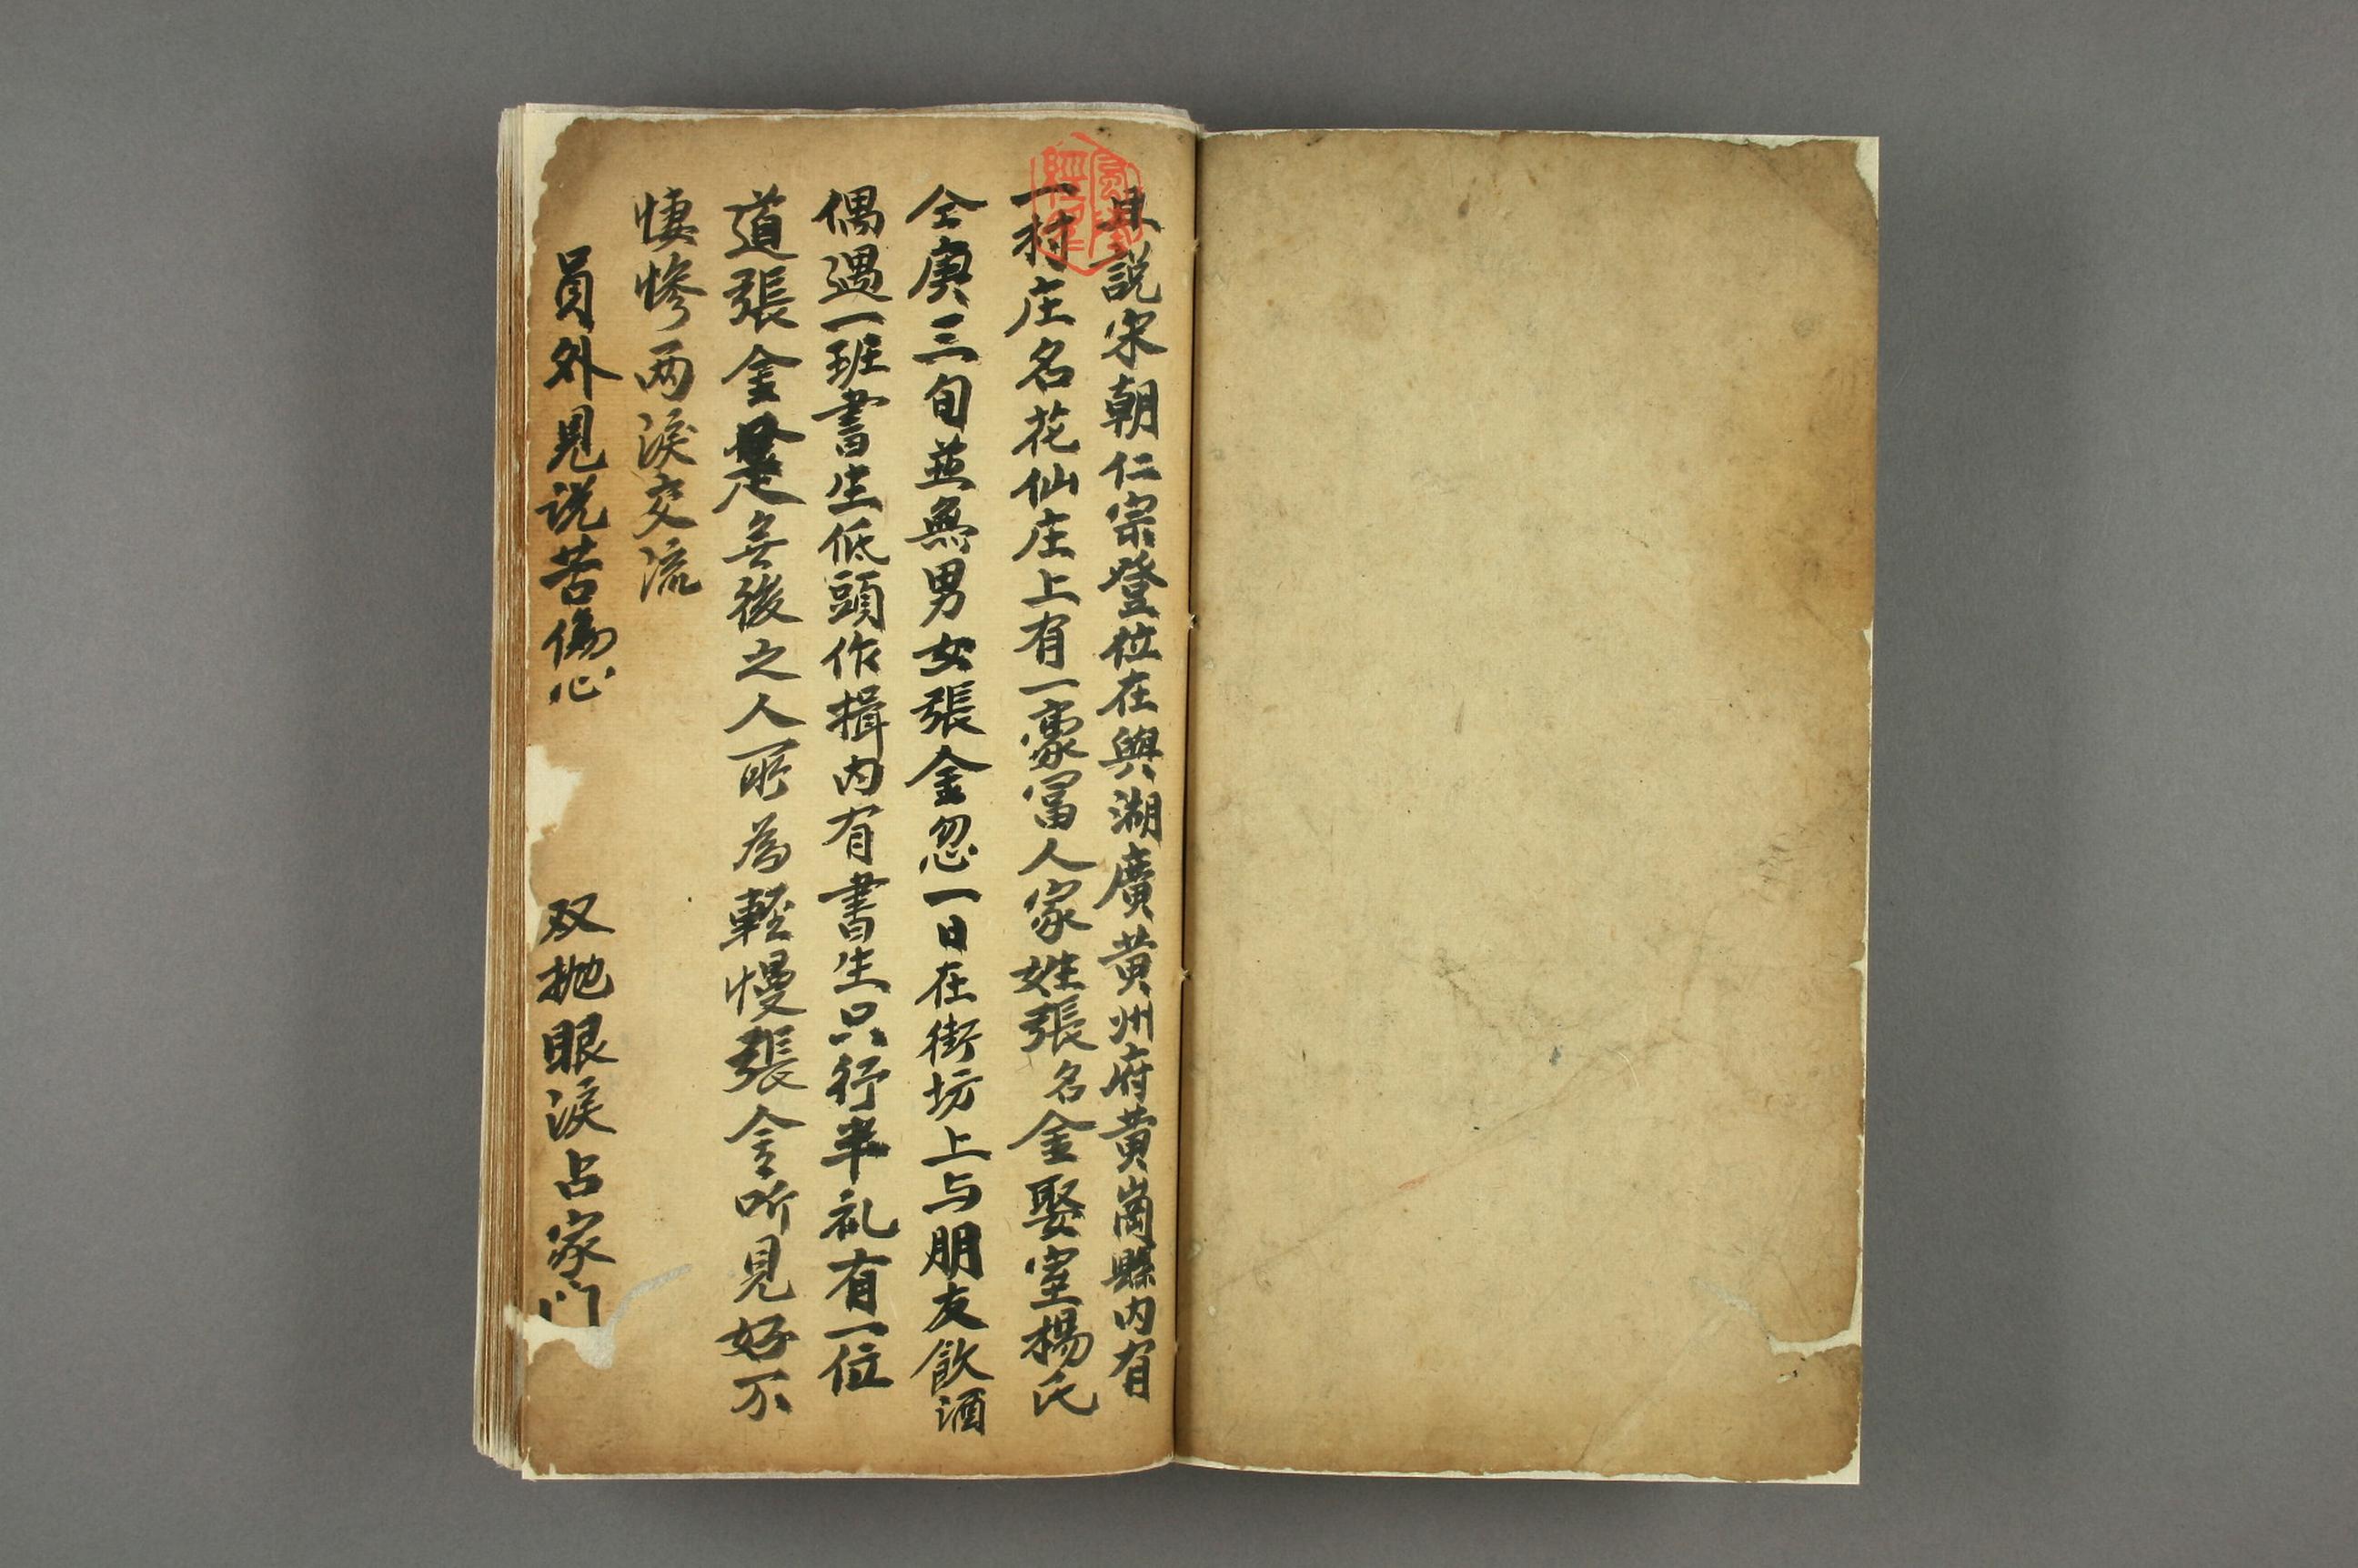 且説宋朝仁宗登位在與湖廣黄州府黄崗縣内有
一村庄名花仙庄上有一豪冨人家姓張名金娶室楊氏
仝庚三旬並無男女張金忽一日在街坊上与朋友飲酒
偶遇一班書生低頭作揖内有書生只行半礼有一位
道張金是無後之人所為輕慢張金听見好不
悽慘两淚交流
員外見说苦傷心 双抛眼淚占家门